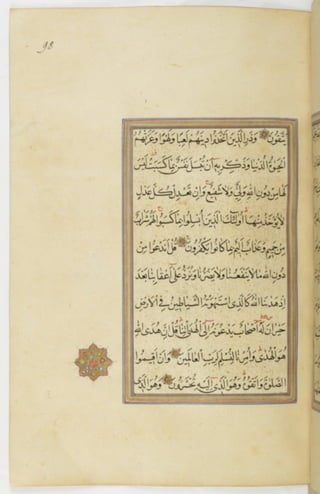 98
يَتَّقُونَ وَذَرِ الَّذِينَ اتَّخَذُوا دِينَهُمْ لَعِبًا وَلَهْوًا وَغَرَّتْهُمُ
الْحَيٰوةُ الدُّنْيَا وَذَكِّرْ بِهِ أَنْ تُبْسَلَ نَفْسٌ بِمَا كَسَبَتْ لَيْسَ
لَهَا مِنْ دُونِ اللهِ وَلِيٌّ وَلَا شَفِيعٌ وَإِنْ تَعْدِلْ كُلَّ عَدْلٍ
لَا يُؤْخَذْ مِنْهَا أُولٰئِكَ الَّذِينَ أُبْسِلُوا بِمَا كَسَبُوا لَهُمْ شَرَابٌ
مِنْ حَمِيمٍ وَعَذَابٌ أَلِيمٌ بِمَا كَانُوا يَكْفُرُونَ قُلْ أَنَدْعُوا مِنْ
دُونِ اللهِ مَا لَا يَنْفَعُنَا وَلَا يَضُرُّنَا وَنُرَدُّ عَلٰى أَعْقَابِنَا بَعْدَ
إِذْ هَدٰنَا اللهُ كَالَّذِي اسْتَهْوَتْهُ الشَّيَاطِينُ فِي الْأَرْضِ
حَيْرَانَ لَهُ أَصْحَابٌ يَدْعُونَهُ إِلَى الْهُدَى ائْتِنَا قُلْ إِنَّ هُدَى اللهِ
هُوَ الْهُدٰى وَأُمِرْنَا لِنُسْلِمَ لِرَبِّ الْعَالَمِينَ وَأَنْ أَقِيمُوا
الصَّلٰوةَ وَاتَّقُوهُ وَهُوَ الَّذِي إِلَيْهِ تُحْشَرُونَ وَهُوَ الَّذِي